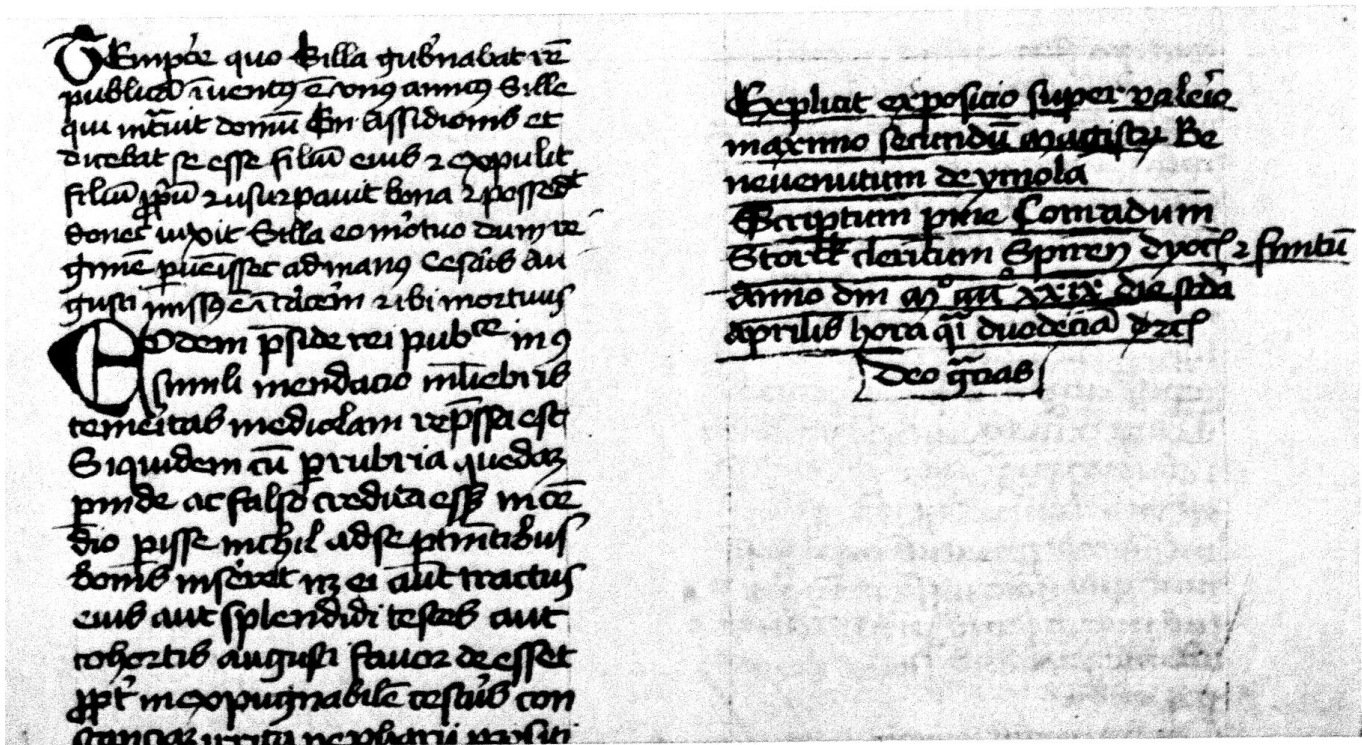 TEmpore quo Silla gub̾nabat rē
publicā īuentꝯ ē vnus amicꝯ Sille
qui int̾uit domū Cn Assidionis et
dicebat se esse filiū eius ⁊ expulit
filiū ꝓpiū ⁊ usurpauit bona ⁊ possedt
donec vixit Silla eo mortuo dum re
gimē ꝑuenisset ad manꝯ Cesaris Au
gusti missꝯ ē ī carcerem ⁊ ibi mortuus
EOdem p̄side rei pubce in
simili mendacio muliebris
temeritas mediolani rep̄ssa est
Siquidem cū ꝓ rubria quedam
ꝑinde ac falso credita esset incē
dio ꝑisse nichil ad se ptinētibus
bonis insereret ei aut tractus
eius aut splendidi testes aut
cohortis augusti fauor deesset
ꝓpt̾ inexpugnabilē cesaris con
stanciam irrita nepharii ꝓpositi
Explicit exposicio super valerio
maximo secundū magistrum Be
neuenutum de ymola
Scriptum per me Conradum
clericum Spiren dyoc ⁊ finitū
Anno dm Mo XXIX die scda
aprilis hora quasi duodecima
Deo gracias